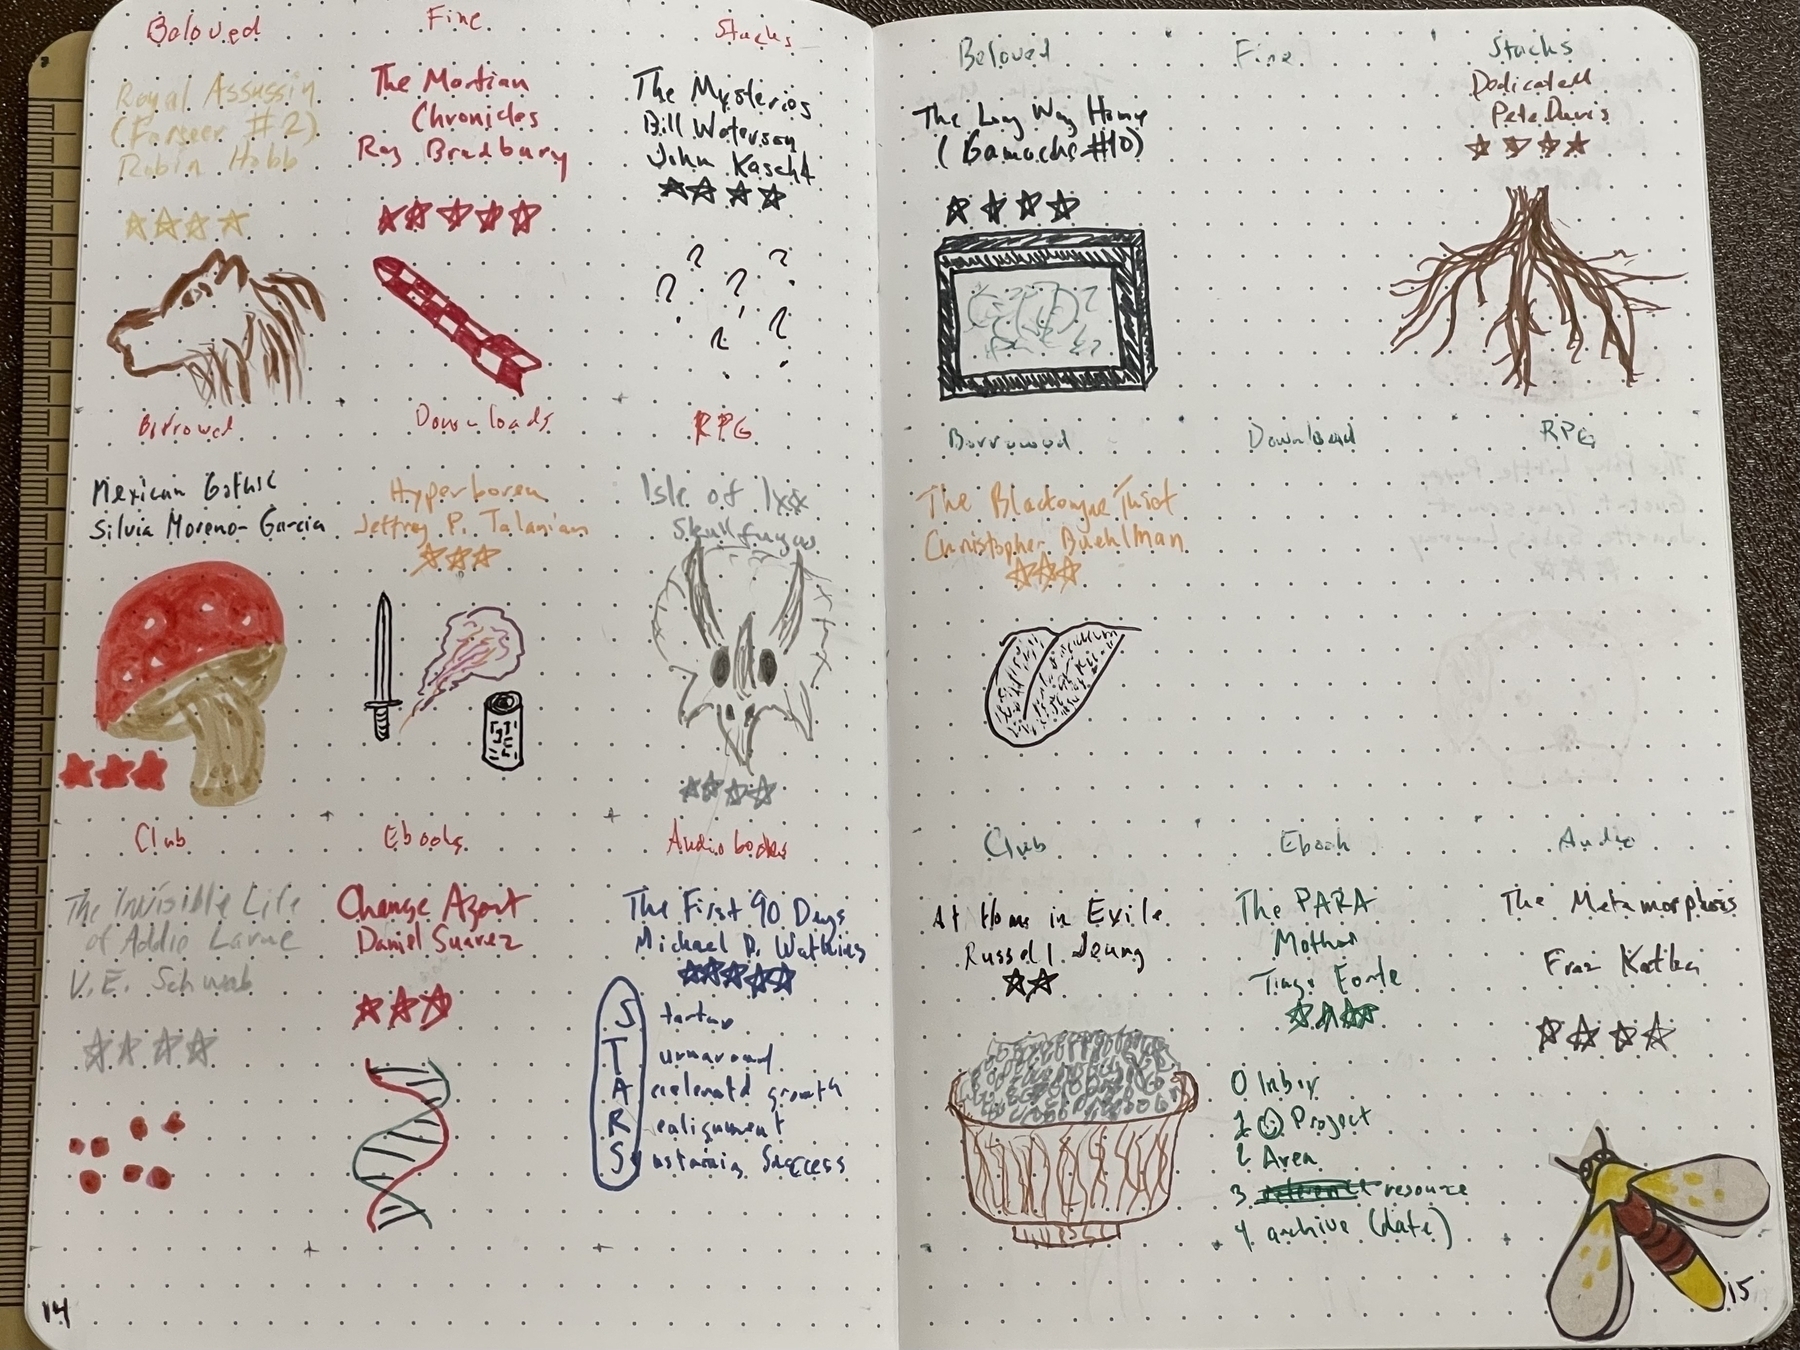 Beloved
Royal Assassin
(Farseer #2)
Robin Hobb
Fine
The Martian
Chronicles
Ray Bradbury
Stacks
The Mysteries
Bill Waterson
John Kascht
? ? ? ? ? ?
Borrowed
Mexican Gothic
Silvia Moreno-Garcia
Downloads
Hyperborea
Jeffrey P. Talanian
RPG
Isle of Ixx
Skullfungus
Club
The Invisible Life
of Addie Larue
V.E. Schwab
Ebooks
Change Agent
Daniel Suarez
Audiobooks
The First 90 Days
Michael D. Watkins
Startup
Turnaround
Accelerated growth
Realignment
Sustaining Success
14
Beloved
The Long Way Home
(Gamache #10)
Fine
Stacks
Dedicated
Pete Davis
Borrowed
The Blacktongue Thief
Christopher Buehlman
Download
RPG
Club
At Home in Exile
Russell Jeung
Ebook
The PARA
Method
Tiago Forte
0 Inbox
1 Project
2 Area
3 resource
4 archive (date)
Audio
The Metamorphosis
Franz Kafka
15